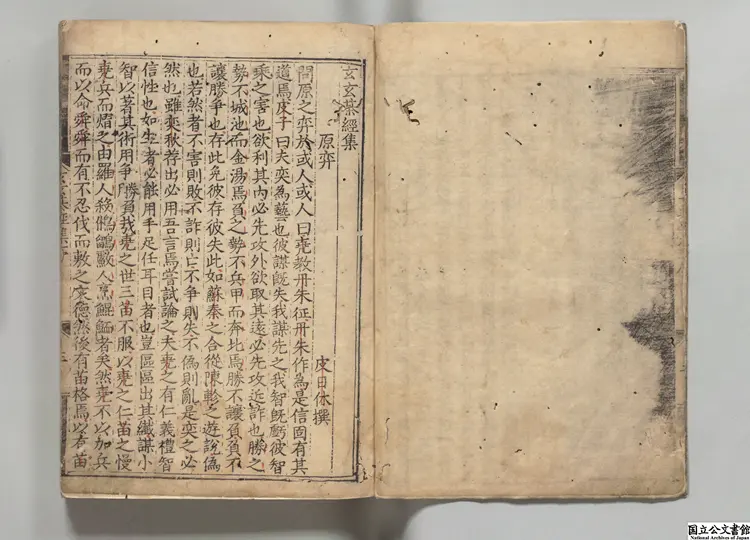 玄玄棊經集
原弈
皮日休撰
問原之弈於或人或人曰堯教丹朱征丹朱作為是信固有其
道焉皮子曰夫奕為藝也彼謀既失我謀先之我智既虧彼智
乘之害也欲利其內必先攻外欲取其遠必先攻近詐也勝之
勢不城池而金湯焉負之勢不兵甲而奔北焉勝不讓負負不
讓勝爭也存此免彼存彼失此如蘇秦之合從陳軫之遊說偽
也若然者不害則敗不詐則亡不爭則失不偽則亂是奕之必
然也雖奕秋荐出必用吾言焉嘗試論之夫堯之有仁義禮智
信性也如生者必能用手足任耳目者也豈區區出其纖謀小
智以著其術用爭勝負哉堯之世三苗不服以堯之仁苗之慢
堯兵而熠之由羅人殺人烹鯤鮞者矣然堯不以加兵
而以命舜舜而有不忍伐而敷之文德然後有苗格焉以有苗
国立公文書館
National Archives of Japan